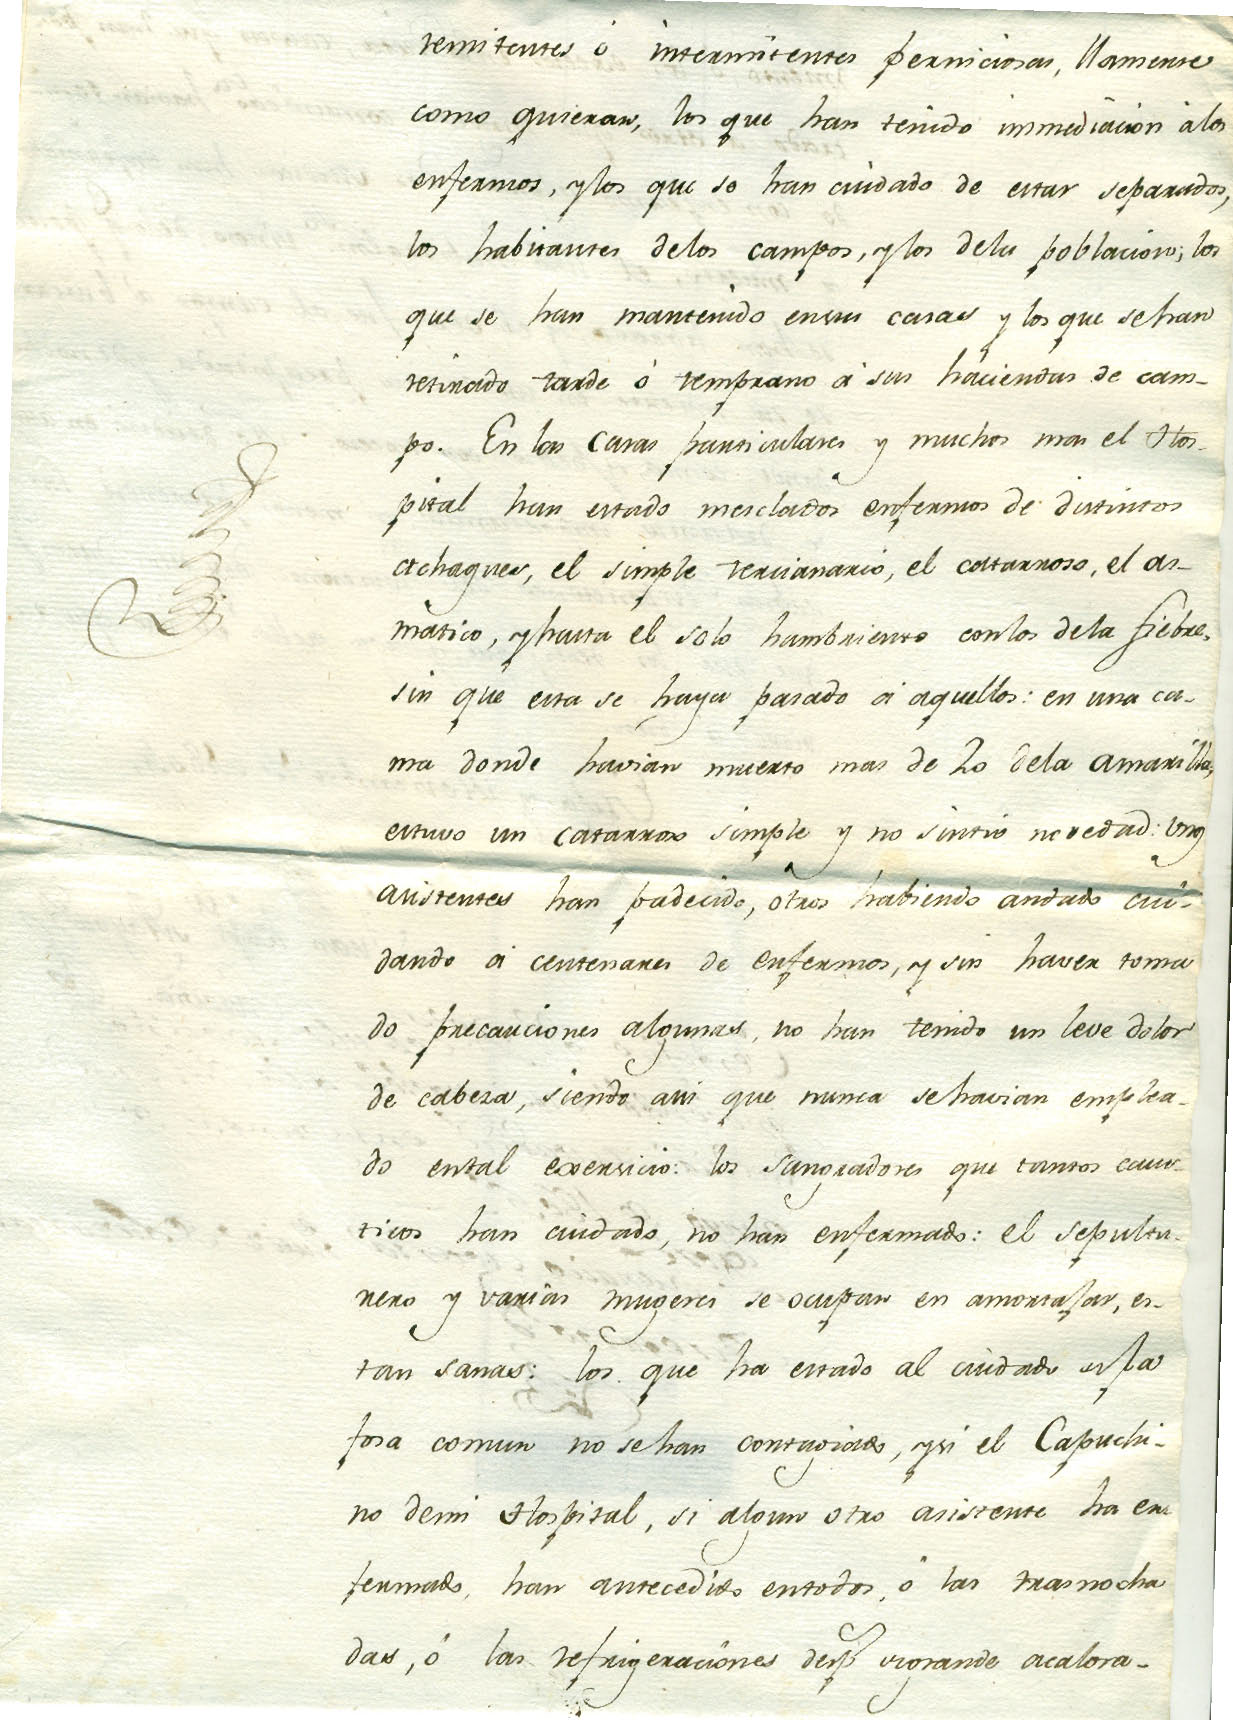 remitentes ó intermitentes perniciosas, llamense
como quieran, los que han tenido inmediacion á los
enfermos, y los que se han cuidado de estar separados,
los habitantes delos campos, y los dela poblacion; los
que se han mantenido ensus casas y los que sehan
retirado tarde ó temprano á sus haciendas de cam-
po. En las Casas particulares y muchos mas el Hos-
pital han estado mesclados enfermos de distintos
achaques, el simple tercianario, el catarroso, el as-
matico, y hasta el solo hambriento conlos dela fiebre,
sin que esta se haya pasado á aquellos: en una ca-
ma donde havian muerto mas de 20 dela amarilla,
estuvo un catarroso simple y no sintió novedad: unos
asistentes han padecido, otros habiendo andado cui-
dando á centenares de enfermos, y sin haver toma
do precauciones algunas, no han tenido un leve dolor
de cabeza, siendo asi que nunca sehavian emplea-
do ental exersicio: los sangradores que tantos caus-
ticos han cuidado, no han enfermado: el sepultu-
rero y varias mugeres se ocupan en amortajar, es-
tan sanas: los que ha estado al cuidado la
fosa comun no sehan contagiado, y si el Capuchi-
no demi Hospital, si algun otro asistente ha en
fermado, han antecedido entodos, ó las trasnocha
das, ó las refrigeraciones grande acalora-